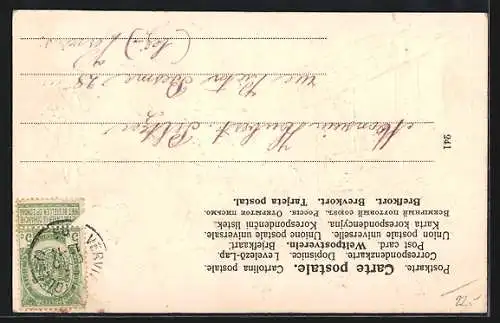 Postkarte. Carte postale. Cartolina postale.
Correspondenzkarte. Dopisnice. Levelező-Lap.
Post card. Weltpostverein. Briefkaart.
Union postale universelle. Unione postale universale.
Karta korespondencyjna. Korespondentni listek.
Всемирный почтовый союз. Россія. Открытое письмо.
Brefkort. Brevkort. Tarjeta postal.
VERVI
941
Monsieur Hubert
rue Victor Besme 28
à
22.-